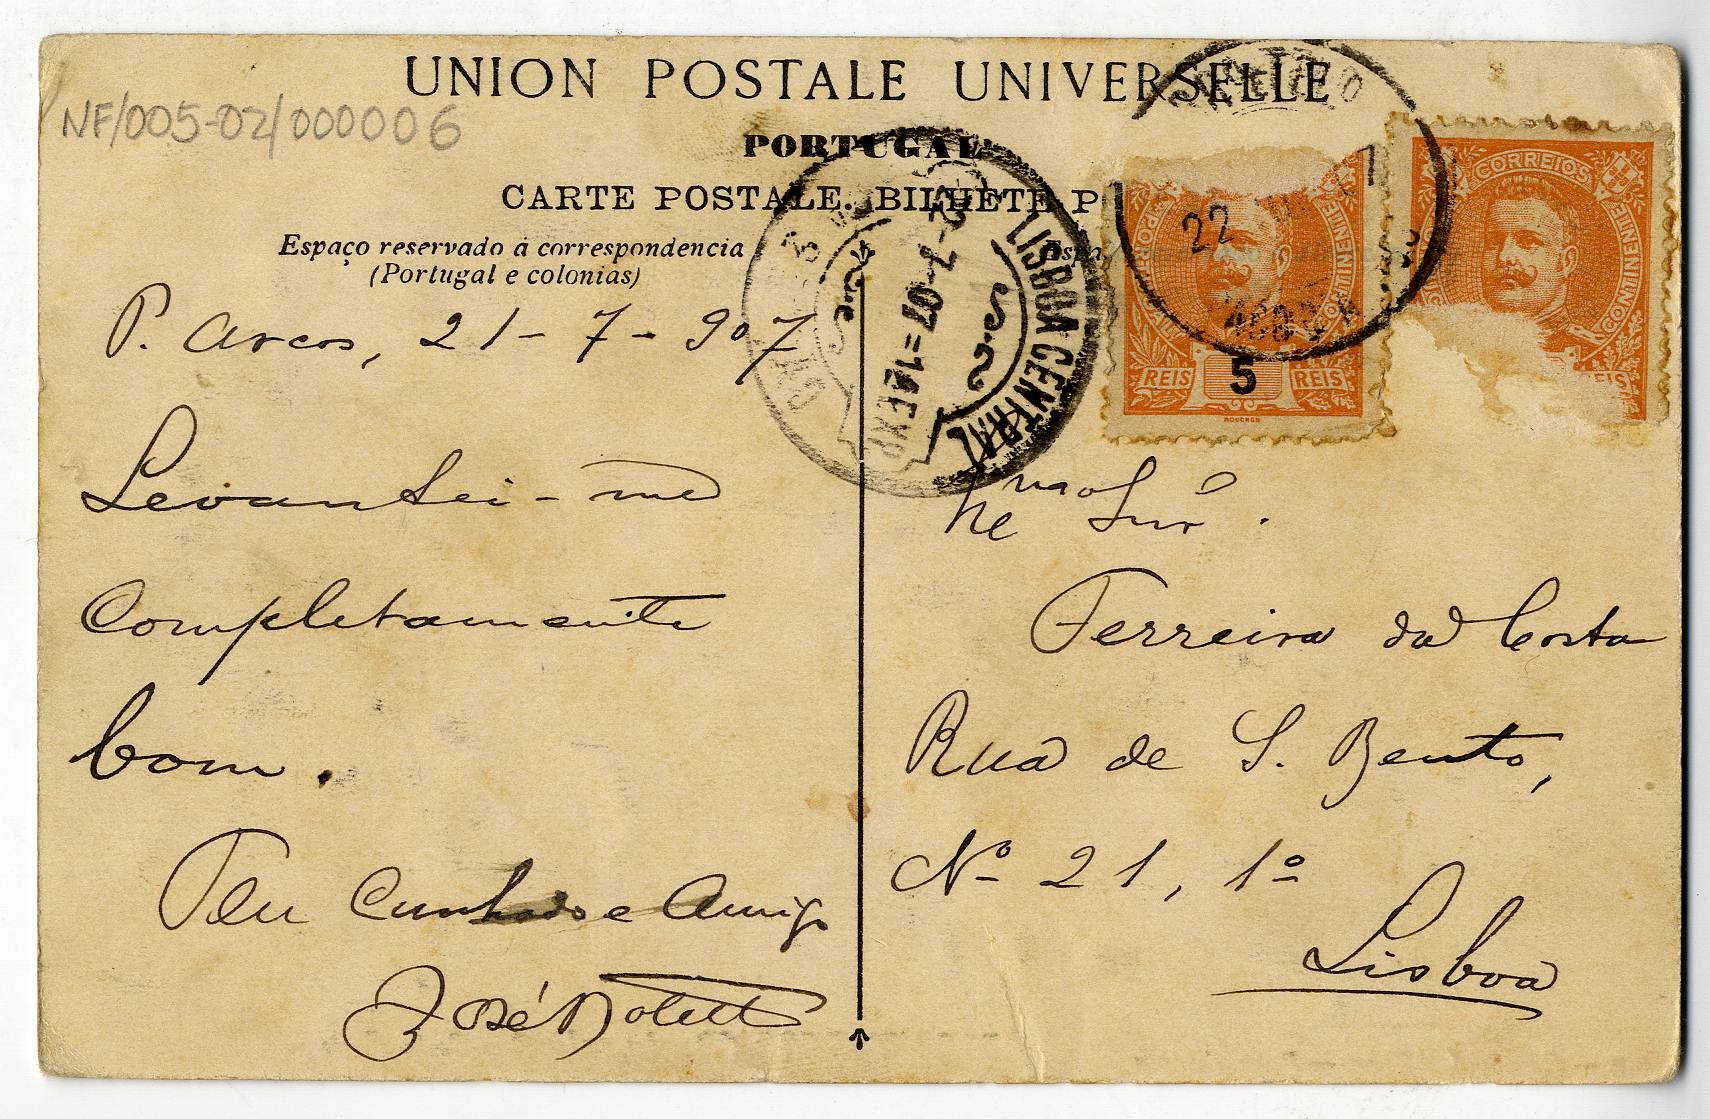 UNION POSTALE UNIVERSELLE
NF/005-02/000006
PORTUGAL
CARTE POSTALE. BILHETE P
Espaço reservado á correspondencia
(Portugal e colonias)
Espa
LISBOA CENTRAL
22-7-07=1AEXP
22
CORREIOS
CONTINENTE
REIS 5 REIS
CORREIOS
CONTINENTE
REIS
P. Arcos, 21-7-907
Levantei-me
completamente
bom.
Teu Cunhado e Amigo
José
Snr.
Ferreira da Costa
Rua de S. Bento,
Nº 21, 1º
Lisboa